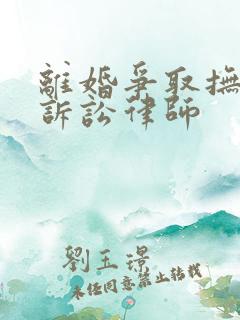 離婚爭取撫
訴訟律師
劉玉璟
未經同意禁止轉載